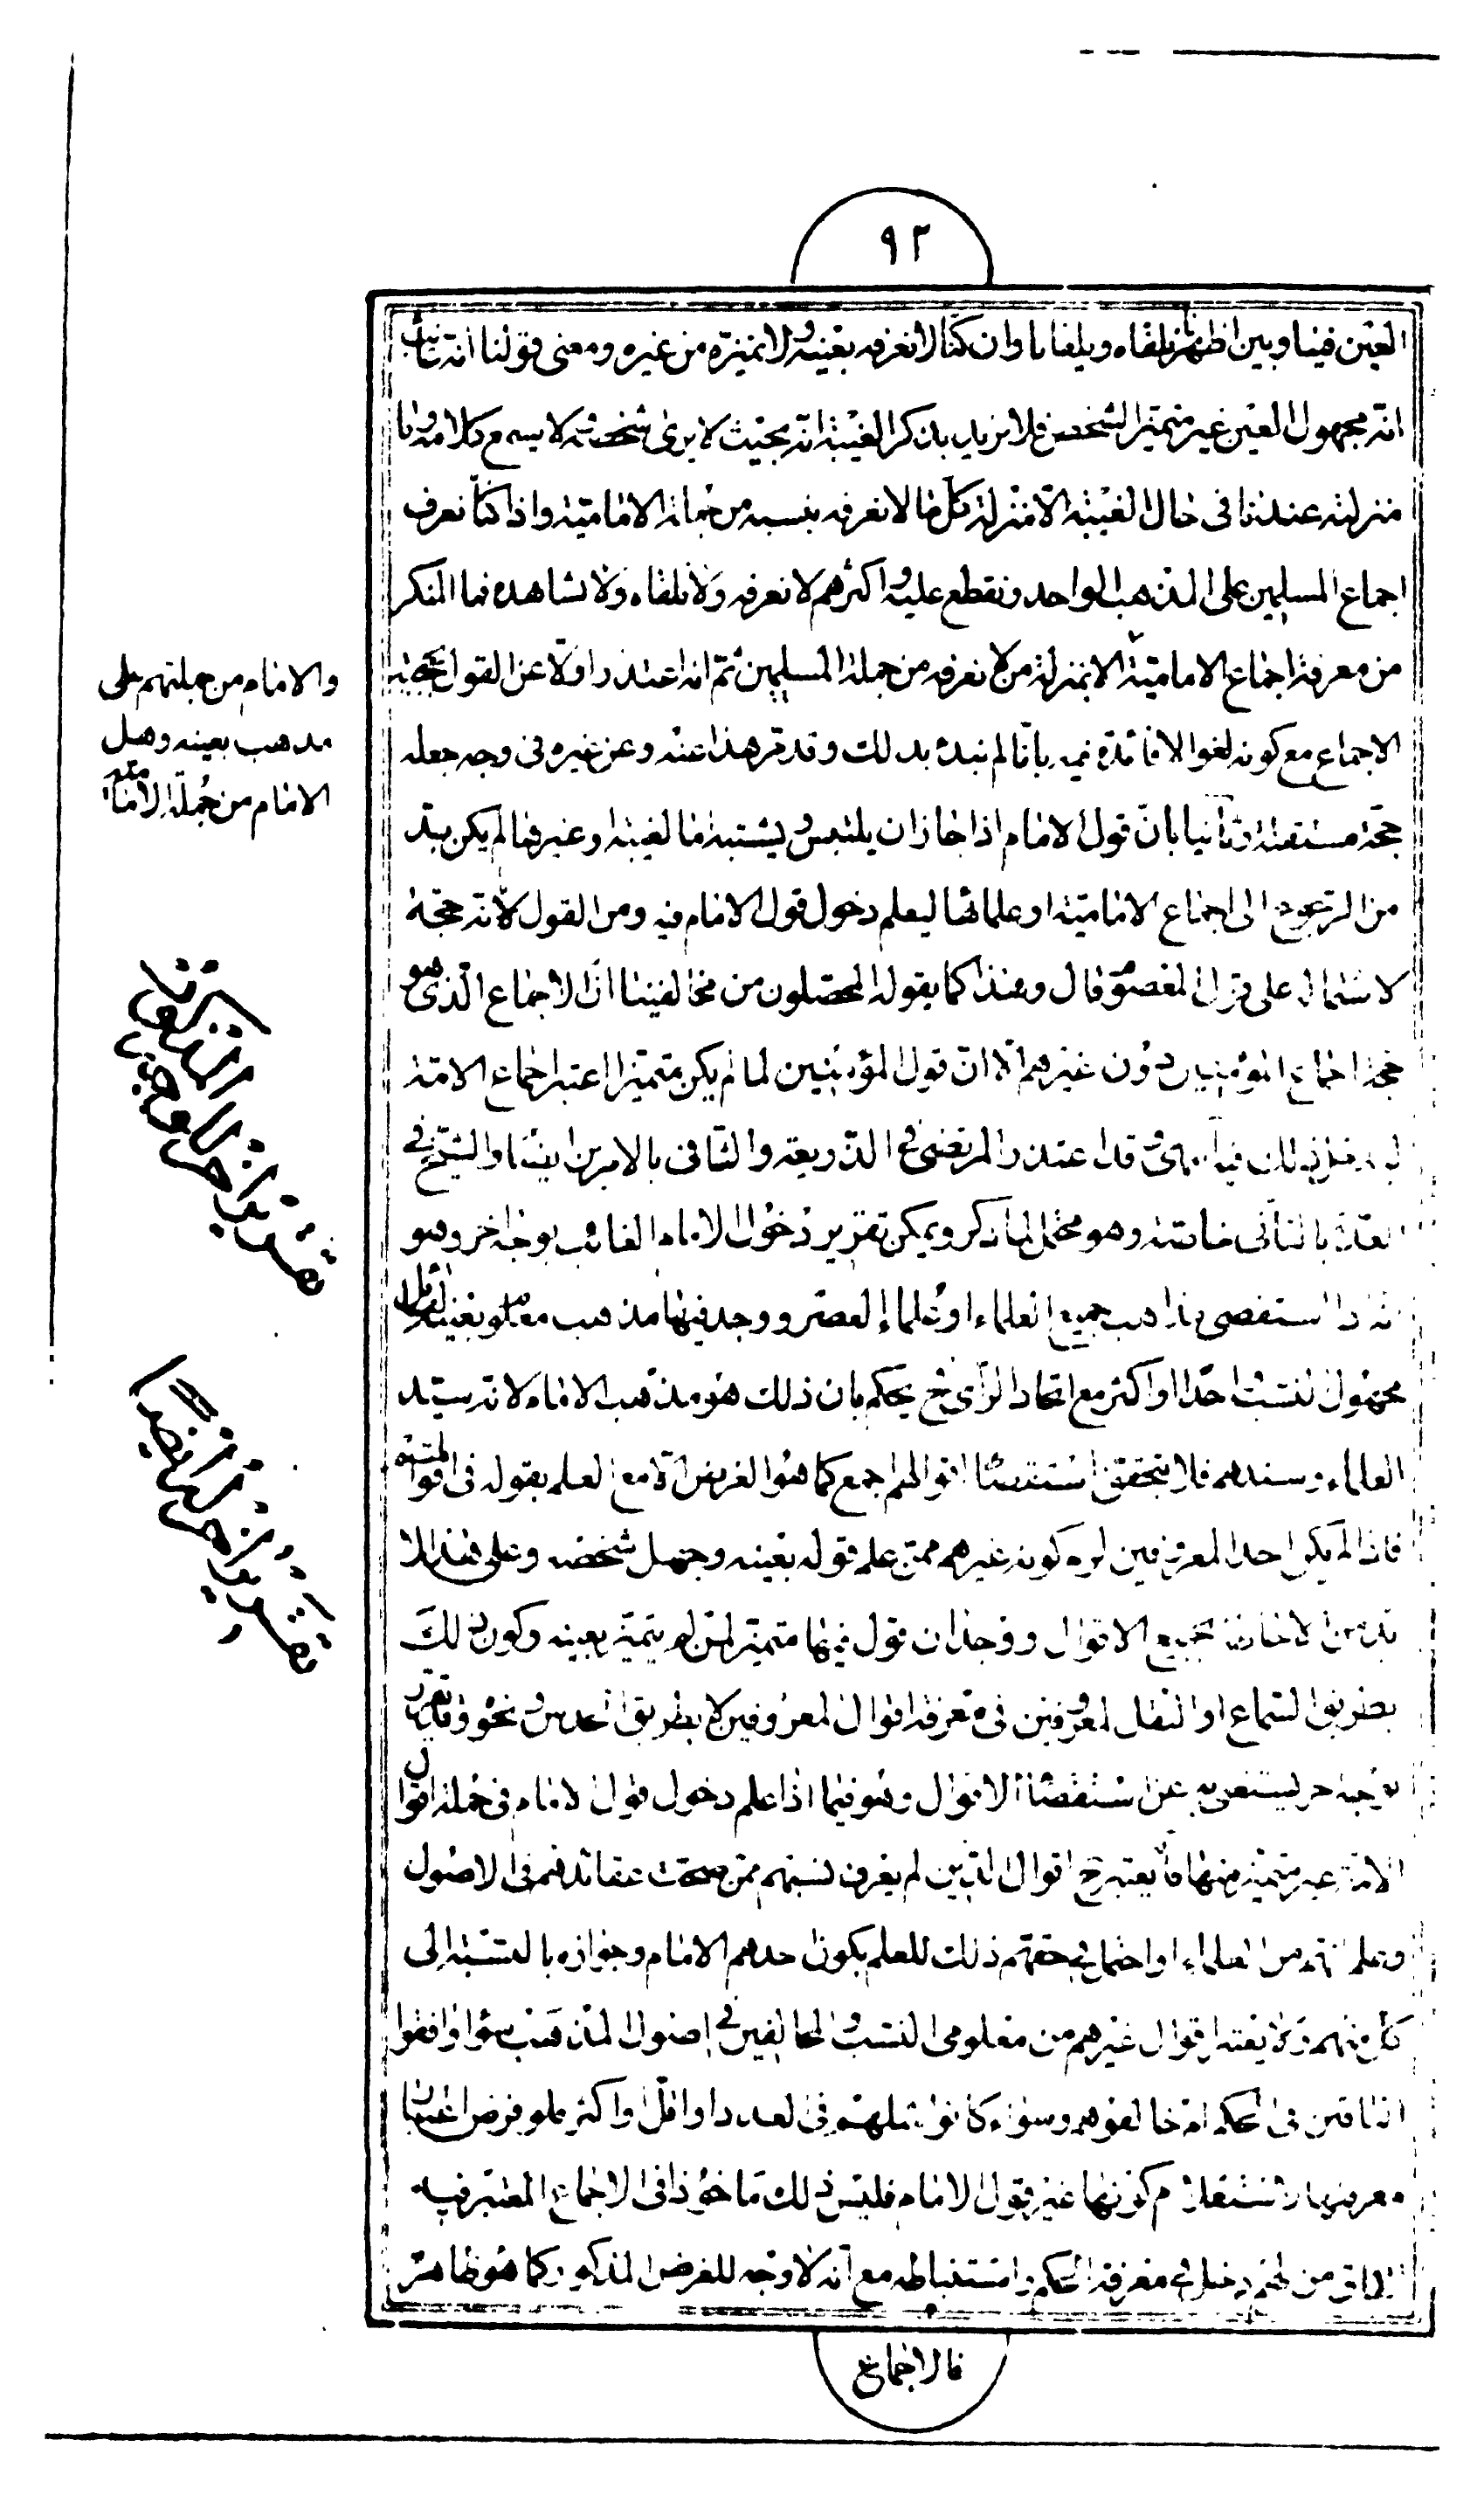 ٩٢
العين فينا وبين اظهرنا نلقاه ويلقانا وان كنا لا نعرفه بعينه ولا نميزه من غيره ومعنى قولنا انه غائب
انه مجهول العين غير متميز الشخص فلا نريد بذكر الغيبة انه بحيث لا يرى شخصه ولا يسمع كلامه وما
منزلته عندنا فى حال الغيبة الا منزلة كل من لا نعرفه بنسبه من جملة الامامية واذا كنا نعرف
اجماع المسلمين على المذهب الواحد ونقطع عليه واكثرهم لا نعرفه ولا نلقاه ولا نشاهده فما المنكر
من معرفة اجماع الامامية الا بمنزلة من لا نعرفه من جملة المسلمين ثم انه اعتذر اولا عن القول بحجية
الاجماع مع كونه لغوا لا فائدة فيه بانا لم نبدء بذلك وقد مر هذا عنه وعن غيره فى وجه جعله
حجة مستقلة وثانيا بان قول الامام اذا جاز ان يلتبس ويشتبه اما لغيبة او غيرها لم يكن بد
من الرجوع الى اجماع الامامية او علمائها ليعلم دخول قول الامام فيه ومن القول لانه حجة
لاشتماله على قول المعصوم قال وهذا كما يقوله المحصلون من مخالفينا ان الاجماع الذى هو
حجة اجماع المؤمنين دون غيرهم الا ان قول المؤمنين لما لم يكن متميزا اعتبر اجماع الامة
قد اعتذر المرتضى فى الذريعة والثانى بالامرين ايضا والشيخ فى
العدة بالثانى خاصة وهو محتمل لما ذكر ويمكن تقرير دخول الامام الغائب بوجه اخر وهو
انه اذا استقصى مذاهب جميع العلماء او علماء العصر ووجد فيها مذهب معلوم بعينه لقائل
مجهول النسب احدا او اكثر مع اتحاد الراى ح يحكم بان ذلك هو مذهب الامام لانه سيد
العلماء وسندهم فلا يتحقق استقصاء اقوالهم اجمع كما هو الغرض الا مع العلم بقوله فى اقوالهم
فاذا لم يكن احد المعروفين لزم كونه غيرهم ممن علم قوله بعينه وجهل شخصه وعلى هذا لا
بد من الاحاطة بجميع الاقوال ووجدان قول فيها متميز لمن لم يتميز بعينه وكون ذلك
بطريق السماع او النقل المعروفين فى معرفة اقوال المعروفين لا بطريق الحدس ونحوه
اخر يستغنى به عن استقصاء الاقوال وهو فيما اذا علم دخول قول الامام فى جملة اقوال
الامة غير متميز منها فانه يعتبر ح اقوال الذين لم يعرف نسبهم ممن صحت عقائدهم فى الاصول
وعلم انه من العلماء او احتمل فى حقهم ذلك للعلم بكون احدهم الامام وجوازه بالنسبة الى
كل منهم ولا يعتبر اقوال غيرهم من معلومى النسب والمخالفين فى اصول المذهب سواء وافقوا
الباقين فى الحكم ام خالفوهم وسواء كانوا مثلهم فى العدد او اقل او اكثر فلو فرض اعتبار
معرفتها لاستعلام كونها غير قول الامام فليس ذلك ماخوذا فى الاجماع المعتبر فيه
اتفاق من لهم دخل فى معرفة الحكم واستنباطه مع انه لا وجه للغرض المذكور كما هو ظاهر
فالاجماع
والامام من جملتهم على
مذهب بعينه وهل
الامام من جملة الامامية